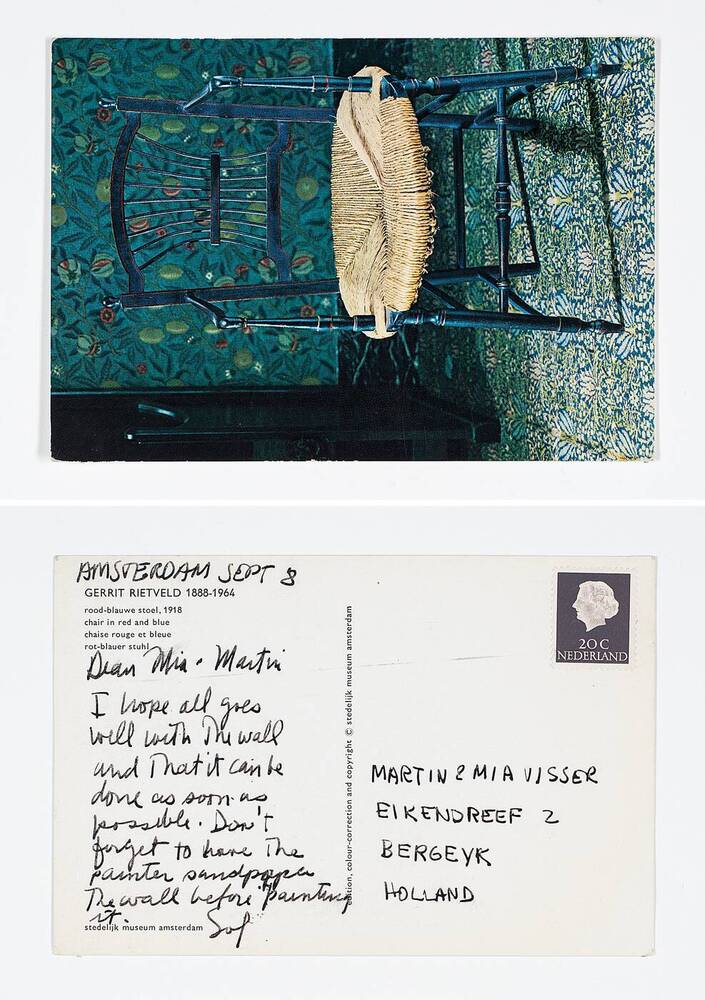 AMSTERDAM SEPT 8
GERRIT RIETVELD 1888-1964
rood-blauwe stoel, 1918
chair in red and blue
chaise rouge et bleue
rot-blauer stuhl
Dear Mia · Martin
I hope all goes
well with The wall
and That it can be
done as soon as
possible. Don't
forget to have The
painter sandpaper
The wall before painting
it.
Sol
stedelijk museum amsterdam
edition, colour-correction and copyright © stedelijk museum amsterdam
20 C
NEDERLAND
MARTIN & MIA VISSER
EIKENDREEF 2
BERGEYK
HOLLAND